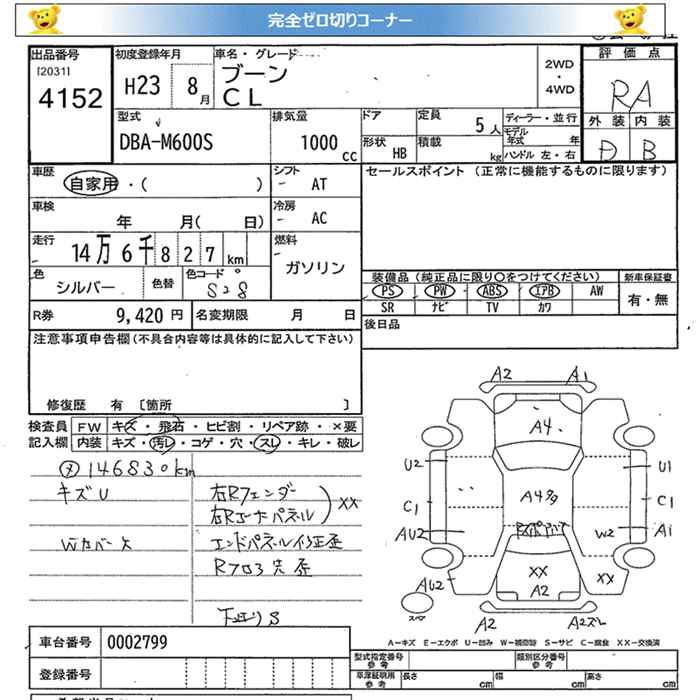 完全ゼロ切りコーナー
出品番号
[2031]
4152
初度登録年月
H23 8月
車名・グレード
ブーン
CL
2WD
・
4WD
評価点
RA
外装 内装
D B
型式
DBA-M600S
排気量
1000 cc
ドア
定員
5人
ディーラー・並行
モデル年式 年
ハンドル 左・右
形状
HB
積載
kg
車歴
自家用・( )
シフト
AT
セールスポイント (正常に機能するものに限ります)
車検
年 月( 日)
冷房
AC
走行
14万6千827km
燃料
ガソリン
色
シルバー
色替
色コード
S28
装備品 (純正品に限り○をつけてください)
新車保証書
PS PW ABS エアB AW
有・無
SR ナビ TV カワ
R券
9,420円
名変期限 月 日
後日品
注意事項申告欄(不具合内容等は具体的に記入して下さい)
修復歴 有 [箇所 ]
検査員
記入欄
FW キズ・飛石・ヒビ割・リペア跡・×要
内装 キズ・汚レ・コゲ・穴・スレ・キレ・破レ
146830km
キズU
右Rフェンダー
右Rコーナーパネル
XX
Wカバー欠
エンドパネル修正歪
Rフロア先歪
下廻りS
A2 A1
A4
U2 U1
A4多
C1 C1
AU2 W2 A1
XX XX
AU2 A2
スペア
A2 A2ズレ
A-キズ E-エクボ U-凹み W-補修跡 S-サビ C-腐食 XX-交換済
車台番号
0002799
登録番号
型式指定番号
参考
類別区分番号
参考
車庫証明用
参考
長さ cm
幅 cm
高さ cm